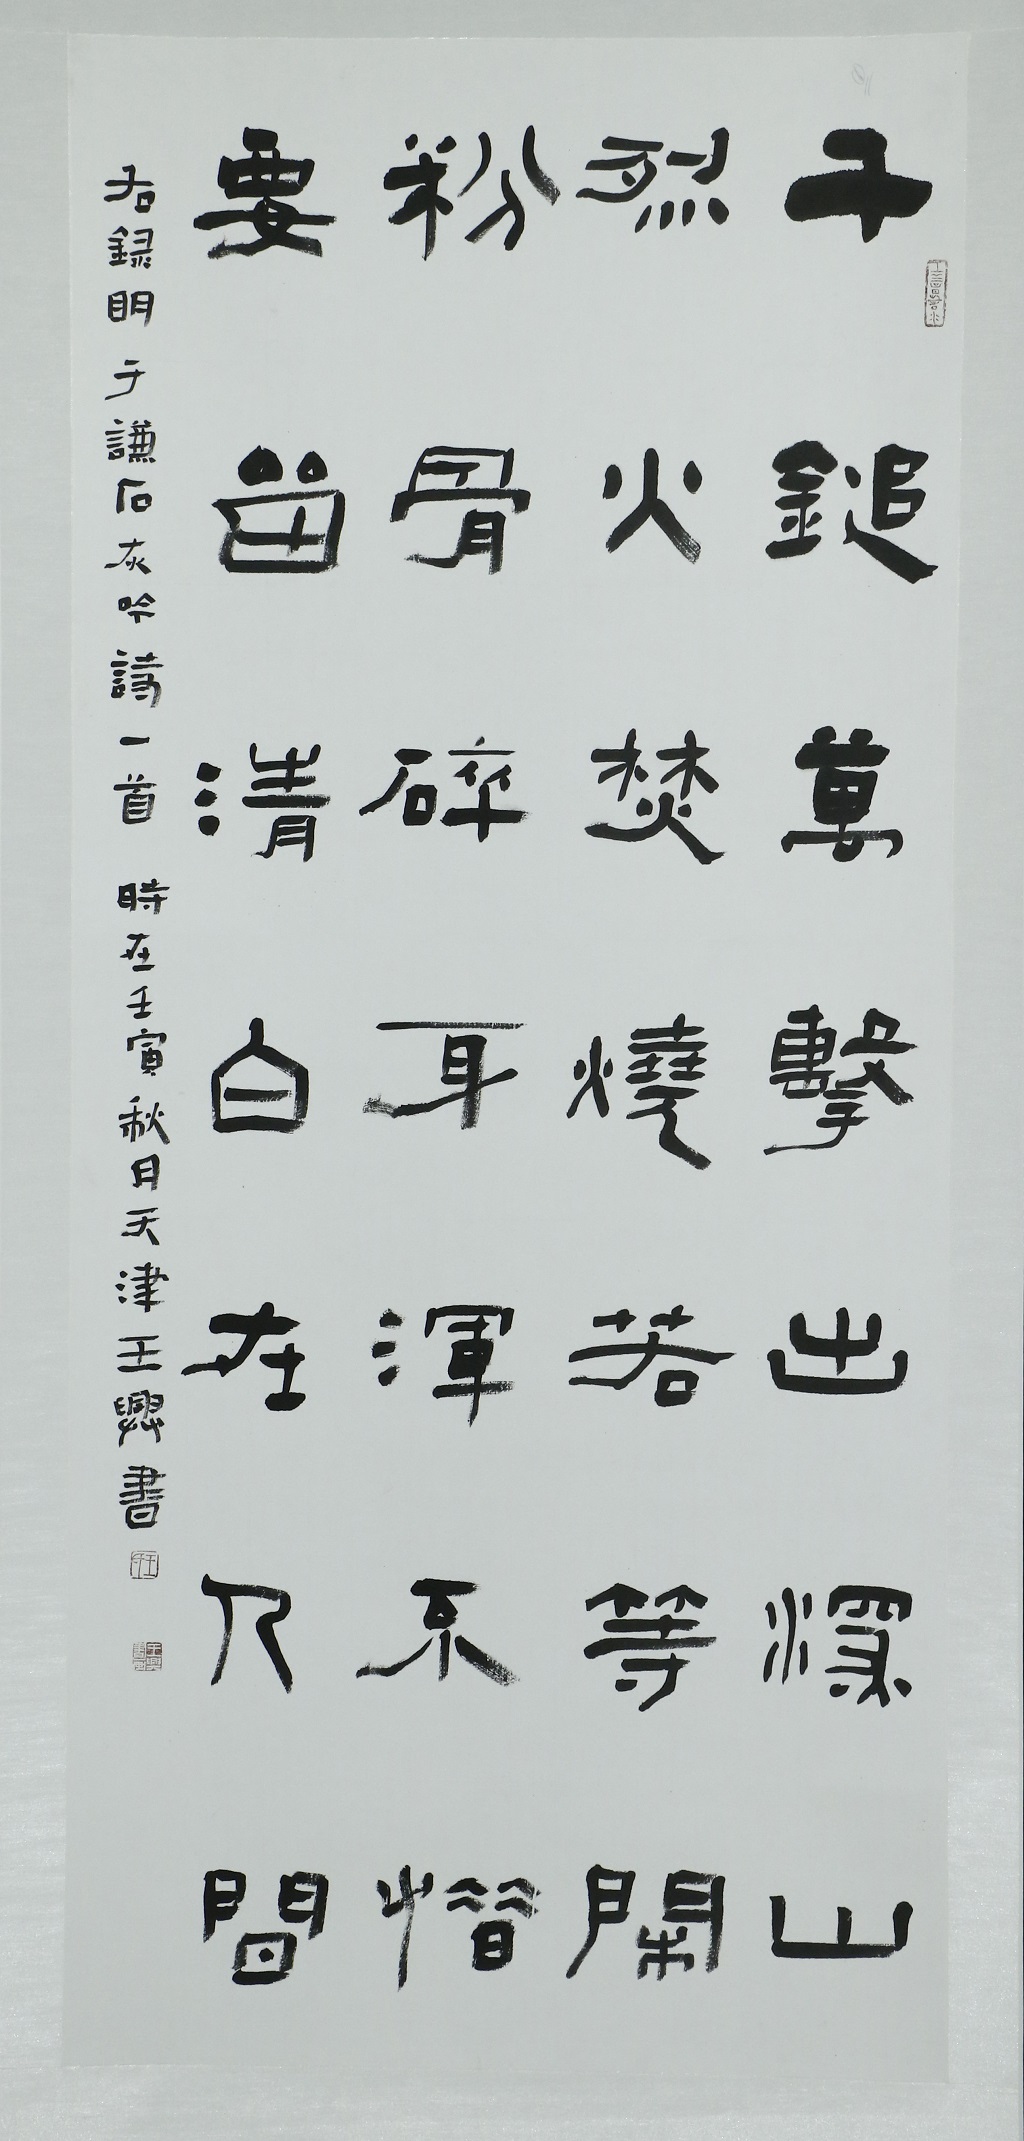 千鎚萬擊出深山
烈火焚燒若等閑
粉骨碎身渾不惜
要留清白在人間
右録明于謙石灰吟詩一首時在壬寅秋月天津王興書